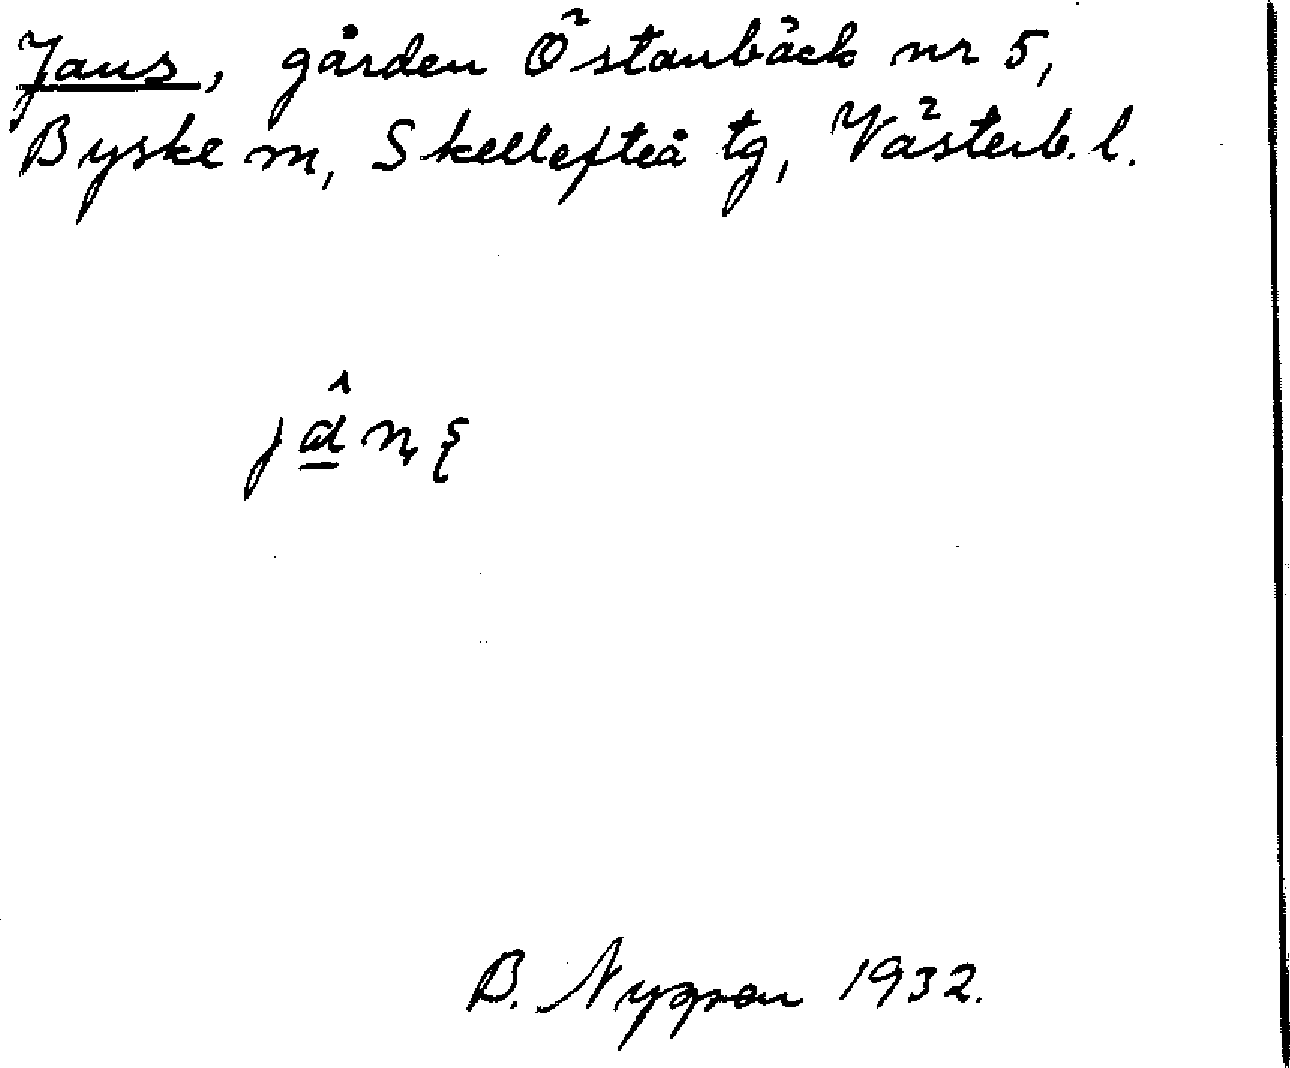 Jans, gården Östanbäck nr 5,
Byske sn, Skellefteå tg, Västerb. l.
B. Nygren 1932.